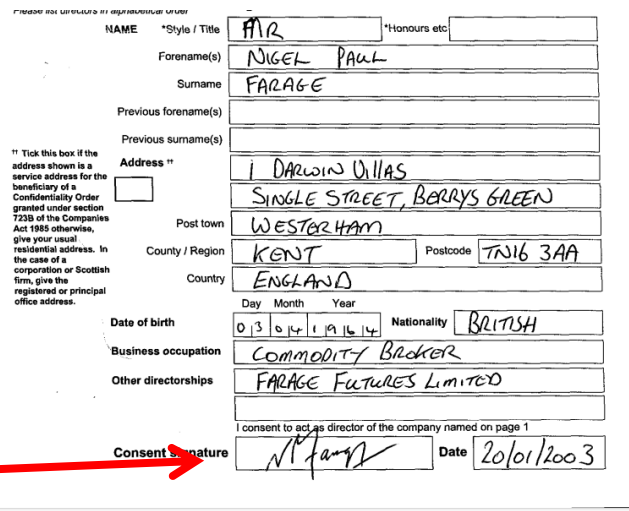 Please list directors in alphabetical order
NAME *Style / Title MR *Honours etc
Forename(s) NIGEL PAUL
Surname FARAGE
Previous forename(s)
Previous surname(s)
†† Tick this box if the
address shown is a
service address for the
beneficiary of a
Confidentiality Order
granted under section
723B of the Companies
Act 1985 otherwise,
give your usual
residential address. In
the case of a
corporation or Scottish
firm, give the
registered or principal
office address.
Address †† 1 DARWIN VILLAS
SINGLE STREET, BERRYS GREEN
Post town WESTERHAM
County / Region KENT Postcode TN16 3AA
Country ENGLAND
Day Month Year
Date of birth 03 04 1964 Nationality BRITISH
Business occupation COMMODITY BROKER
Other directorships FARAGE FUTURES LIMITED
I consent to act as director of the company named on page 1
Consent signature Date 20/01/2003